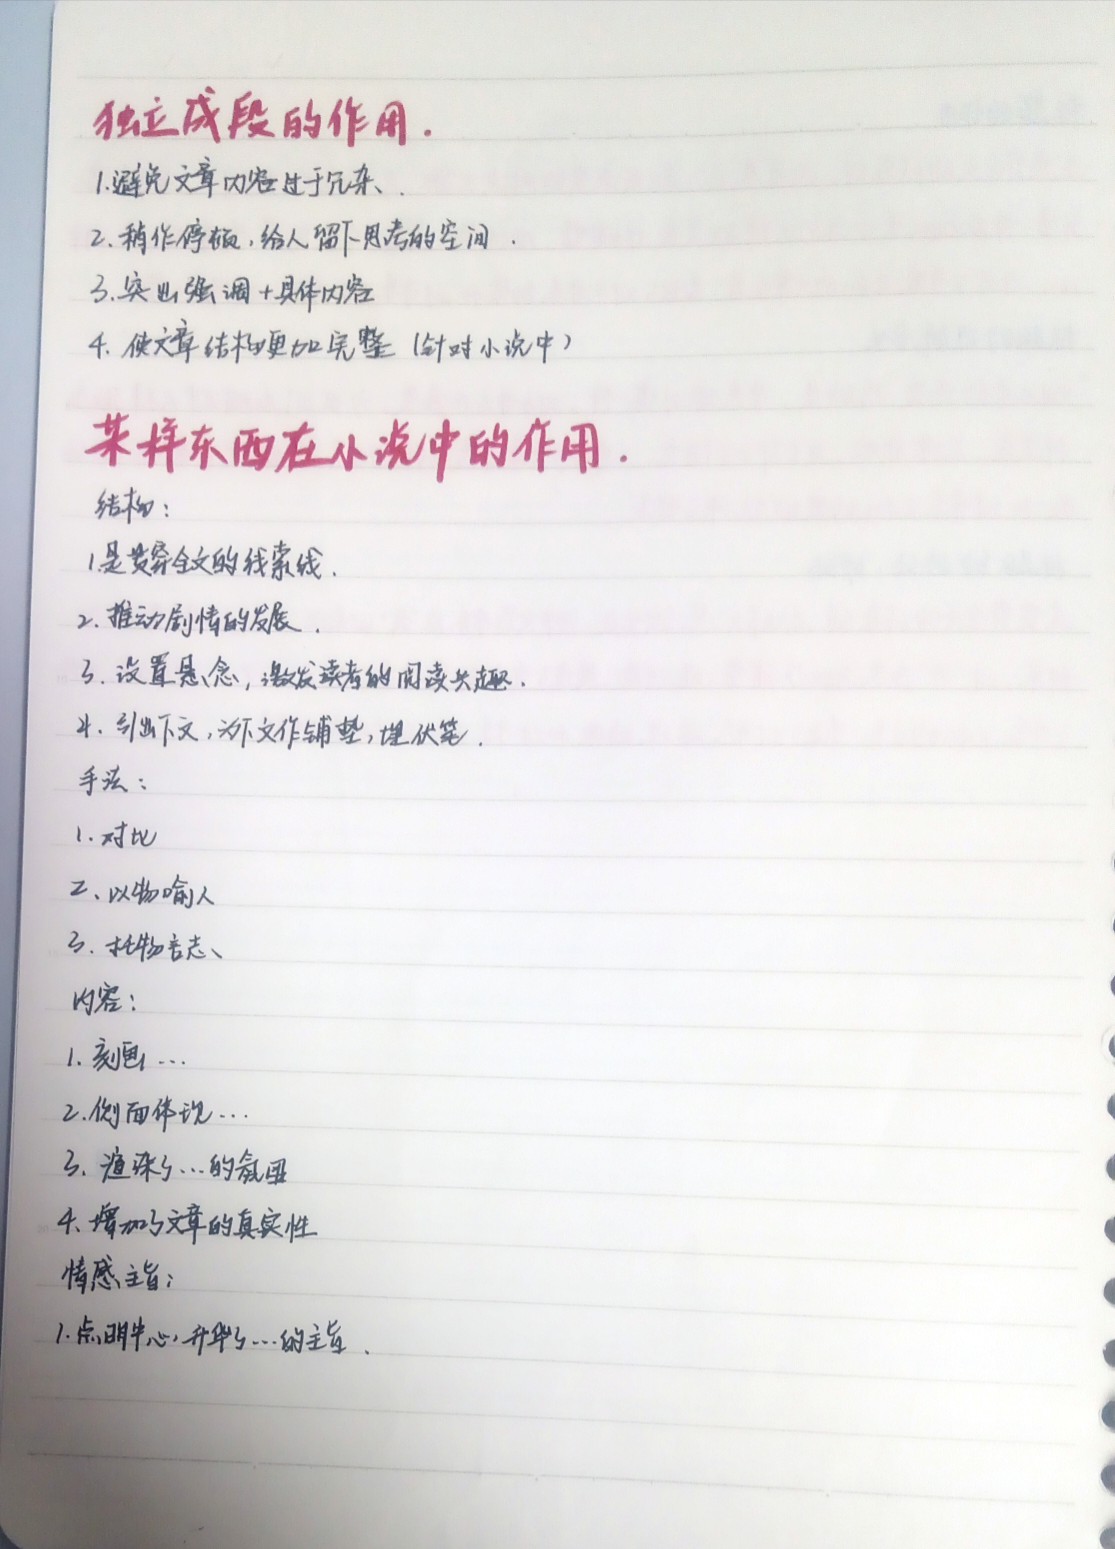 独立成段的作用.
1.避免文章内容过于冗杂、.
2.稍作停顿,给人留下思考的空间.
3.突出强调+具体内容
4.使文章结构更加完整(针对小说中)
某样东西在小说中的作用.
结构:
1是贯穿全文的线索线.
2.推动剧情的发展.
3.设置悬念,激发读者的阅读兴趣.
4.引出下文,为下文作铺垫,埋伏笔.
手法:
1.对比
2、以物喻人
3.托物言志、
内容:
1.刻画…
2.侧面体现…
3、渲染了…的氛围
4、增加了文章的真实性
情感主旨:
1.点明中心,升华了…的主旨.